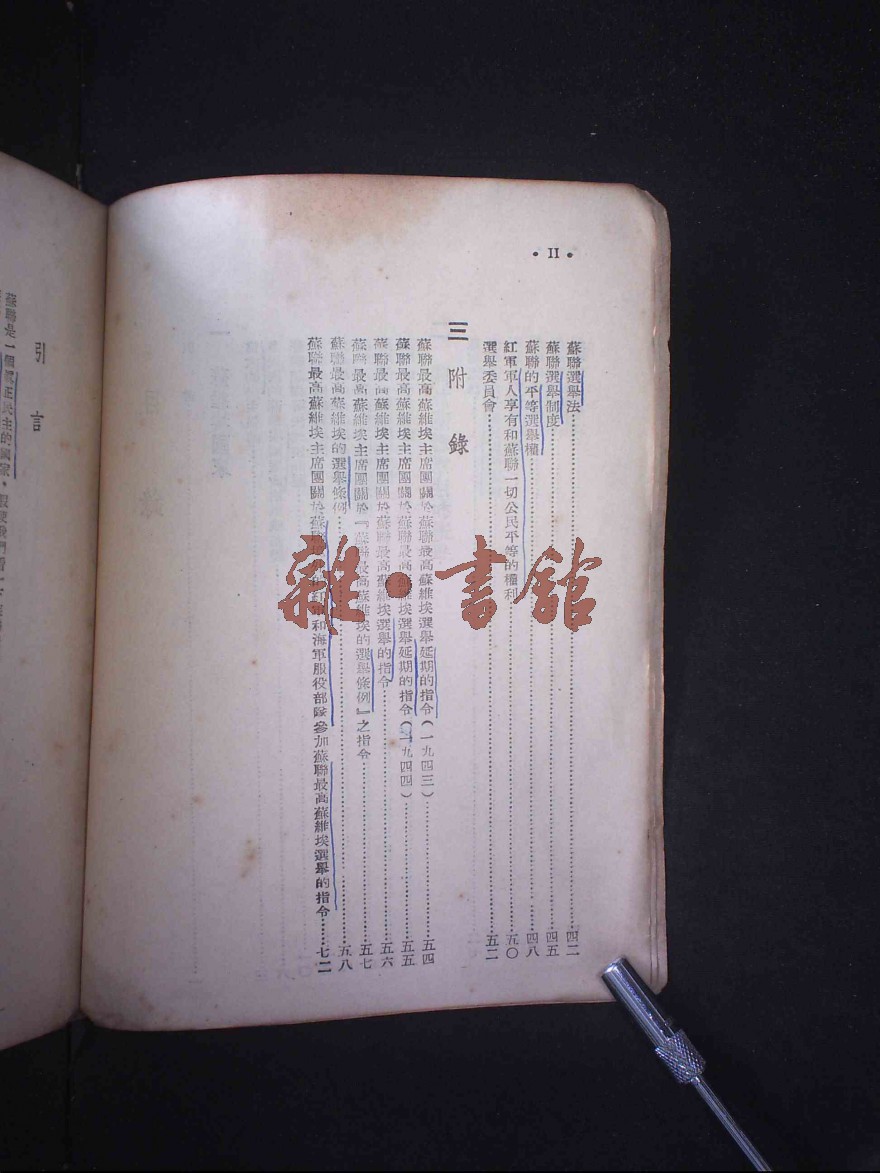 • II •
蘇聯選舉法……四二
蘇聯選舉制度……四五
蘇聯的平等選舉權……四八
紅軍軍人享有和蘇聯一切公民平等的權利……五〇
選舉委員會……五二
三 附錄
蘇聯最高蘇維埃主席團關於蘇聯最高蘇維埃選舉延期的指令(一九四三)……五四
蘇聯最高蘇維埃主席團關於蘇聯最高蘇維埃選舉延期的指令(一九四四)……五五
蘇聯最高蘇維埃主席團關於蘇聯最高蘇維埃選舉的指令……五六
蘇聯最高蘇維埃主席團關於『蘇聯最高蘇維埃的選舉條例』之指令……五七
蘇聯最高蘇維埃的選舉條例……五八
蘇聯最高蘇維埃主席團關於蘇聯紅軍和海軍服役部隊參加蘇聯最高蘇維埃選舉的指令……七二
雜•書館
引言
蘇聯是一個真正民主的國家。